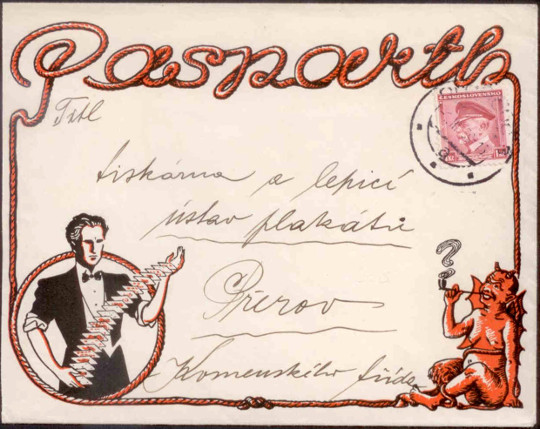 Pasparth
Titl
tiskárna a lepicí
ústav plakátů
Přerov
Komenského třída
ČESKOSLOVENSKO
??